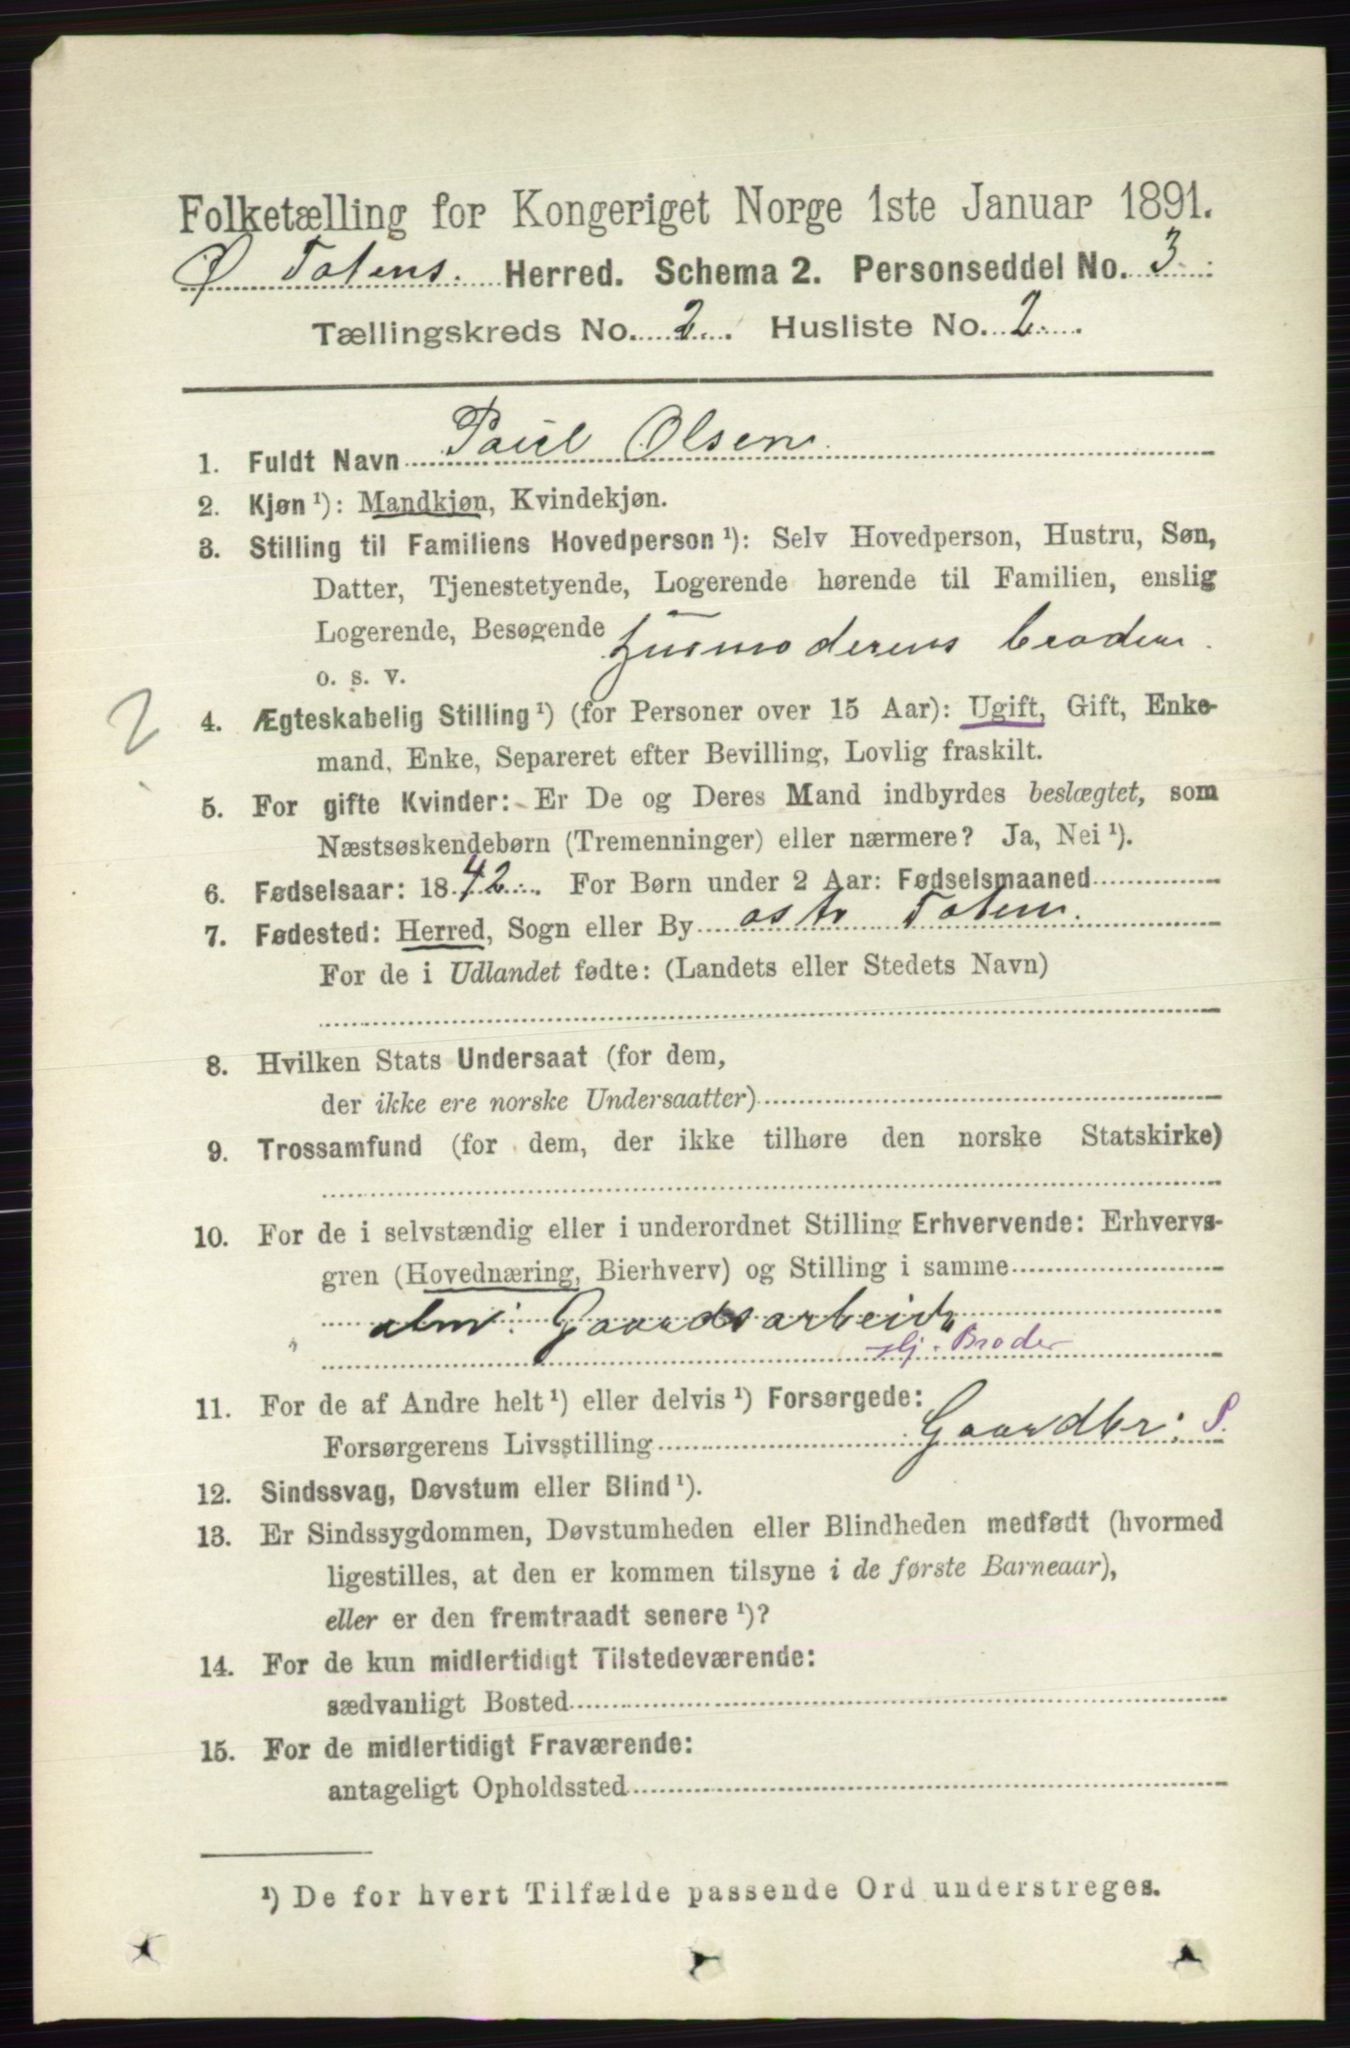 Folketælling for Kongeriget Norge 1ste Januar 1891.
Ø Totens. Herred. Schema 2. Personseddel No. 3
Tællingskreds No. 2. Husliste No. 2
1. Fuldt Navn Paul Olsen
2. Kjøn ¹): Mandkjøn, Kvindekjøn.
3. Stilling til Familiens Hovedperson ¹): Selv Hovedperson, Hustru, Søn,
Datter, Tjenestetyende, Logerende hørende til Familien, enslig
Logerende, Besøgende Husmoderens broder.
o. s. v.
2
4. Ægteskabelig Stilling ¹) (for Personer over 15 Aar): Ugift, Gift, Enke-
mand, Enke, Separeret efter Bevilling, Lovlig fraskilt.
5. For gifte Kvinder: Er De og Deres Mand indbyrdes beslægtet, som
Næstsøskendebørn (Tremenninger) eller nærmere? Ja, Nei ¹).
6. Fødselsaar: 1842. For Børn under 2 Aar: Fødselsmaaned
7. Fødested: Herred, Sogn eller By østr Toten.
For de i Udlandet fødte: (Landets eller Stedets Navn)
8. Hvilken Stats Undersaat (for dem,
der ikke ere norske Undersaatter)
9. Trossamfund (for dem, der ikke tilhøre den norske Statskirke)
10. For de i selvstændig eller i underordnet Stilling Erhvervende: Erhvervs-
gren (Hovednæring, Bierhverv) og Stilling i samme
alm: Gaardsarbeid
hj. Broder
11. For de af Andre helt ¹) eller delvis ¹) Forsørgede:
Forsørgerens Livsstilling Gaardbr: S.
12. Sindssvag, Døvstum eller Blind ¹).
13. Er Sindssygdommen, Døvstumheden eller Blindheden medfødt (hvormed
ligestilles, at den er kommen tilsyne i de første Barneaar),
eller er den fremtraadt senere ¹)?
14. For de kun midlertidigt Tilstedeværende:
sædvanligt Bosted
15. For de midlertidigt Fraværende:
antageligt Opholdssted
¹) De for hvert Tilfælde passende Ord understreges.